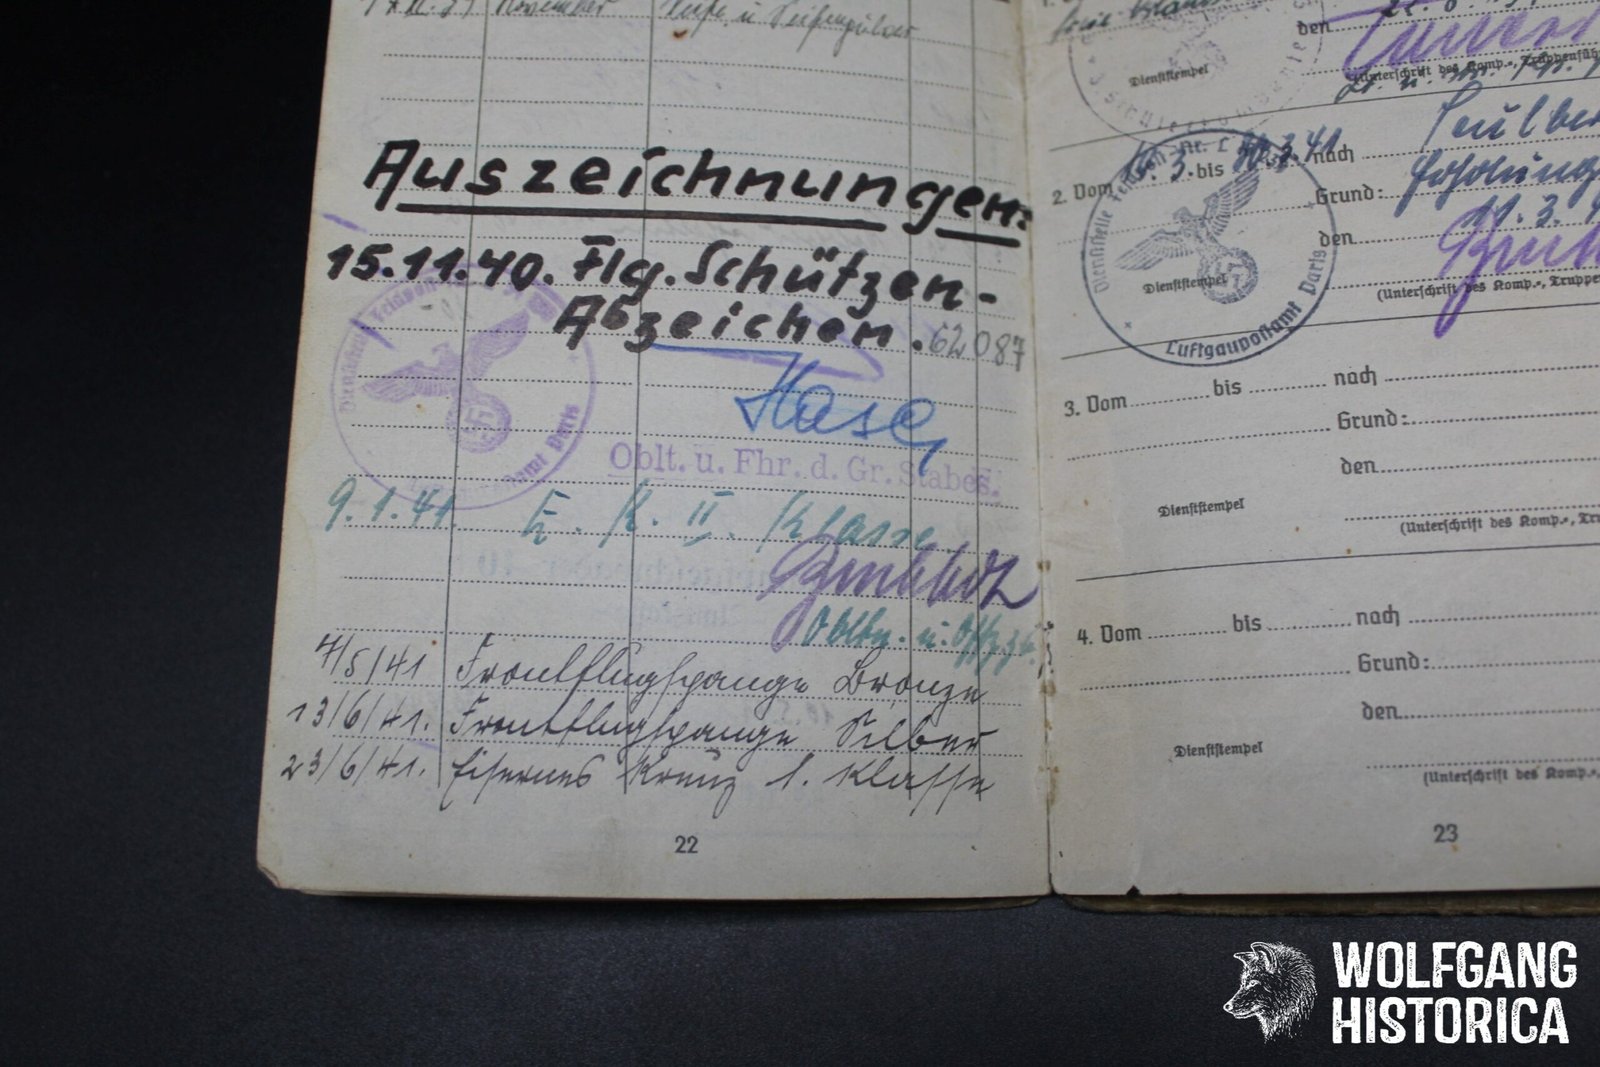 November Seife u Seifenpulver
Auszeichnungen:
15.11.40. Flg. Schützen-
Abzeichen. 62087
Hase
Oblt. u. Fhr. d. Gr. Stabes.
9.1.41. E. K. II. Klasse
Obltn. u.
4/5/41 Frontflugspange Bronze
13/6/41. Frontflugspange Silber
23/6/41. Eisernes Kreuz 1. Klasse
22
den
Dienststempel
(Unterschrift des Komp.-, Truppenfüh
2. Vom bis 3.41 nach
Grund:
den 11.3.
Dienststempel
(Unterschrift des Komp.-, Truppe
Dienststelle Luftgaupostamt Paris
3. Vom bis nach
Grund:
den
Dienststempel
(Unterschrift des Komp.-, Tru
4. Vom bis nach
Grund:
den
Dienststempel
(Unterschrift des Komp.-,
23
WOLFGANG
HISTORICA